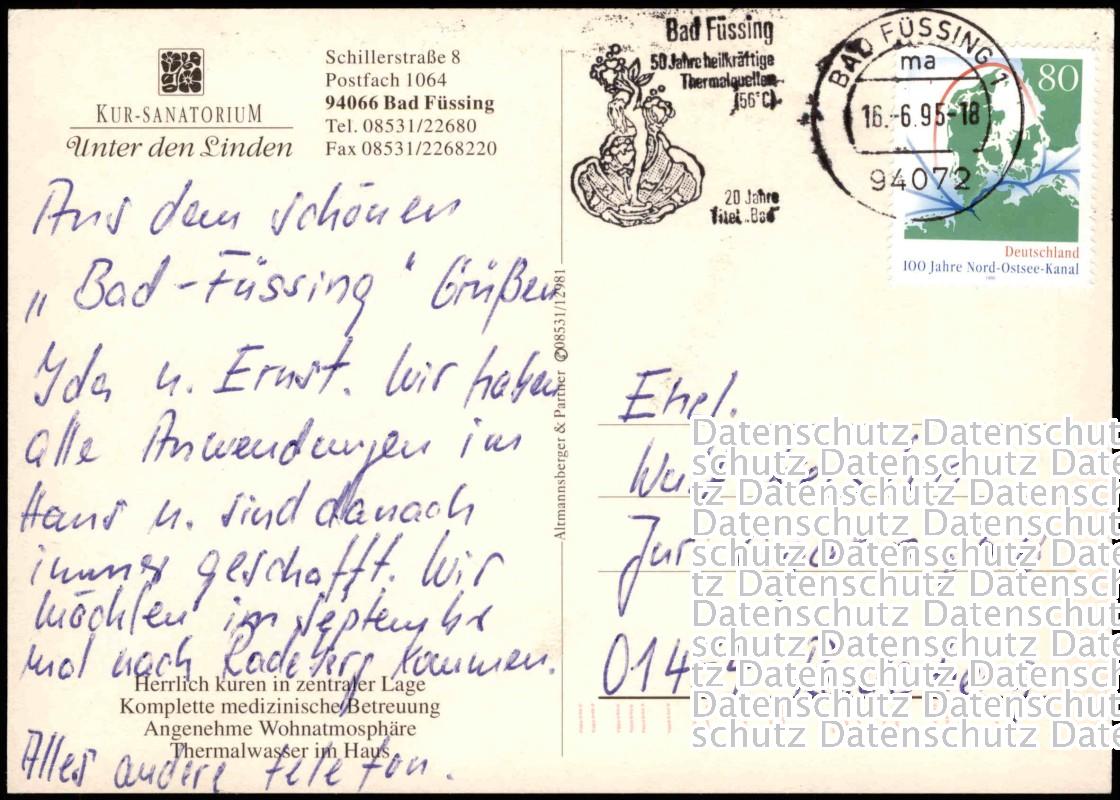 KUR-SANATORIUM
Unter den Linden
Schillerstraße 8
Postfach 1064
94066 Bad Füssing
Tel. 08531/22680
Fax 08531/2268220
Bad Füssing
50 Jahre heilkräftige
Thermalquellen
(56°C)
20 Jahre
Titel „Bad"
BAD FÜSSING 1
ma
16.-6.95-18
94072
80
Deutschland
100 Jahre Nord-Ostsee-Kanal
Aus dem schönen
„Bad-Füssing" Grüßen
Ida u. Ernst. Wir haben
alle Anwendungen im
Haus u. sind danach
immer geschafft. Wir
möchten im September
mal nach Radeberg kommen.
Alles andere telefon.
Herrlich kuren in zentraler Lage
Komplette medizinische Betreuung
Angenehme Wohnatmosphäre
Thermalwasser im Haus
Altmannsberger & Partner ✆08531/12981
Ehel.
Zur
014
Datenschutz Datenschut
schutz Datenschutz Date
tz Datenschutz Datensch
Datenschutz Datenschut
schutz Datenschutz Date
tz Datenschutz Datensch
Datenschutz Datenschut
schutz Datenschutz Date
tz Datenschutz Datensch
Datenschutz Datenschut
schutz Datenschutz Date